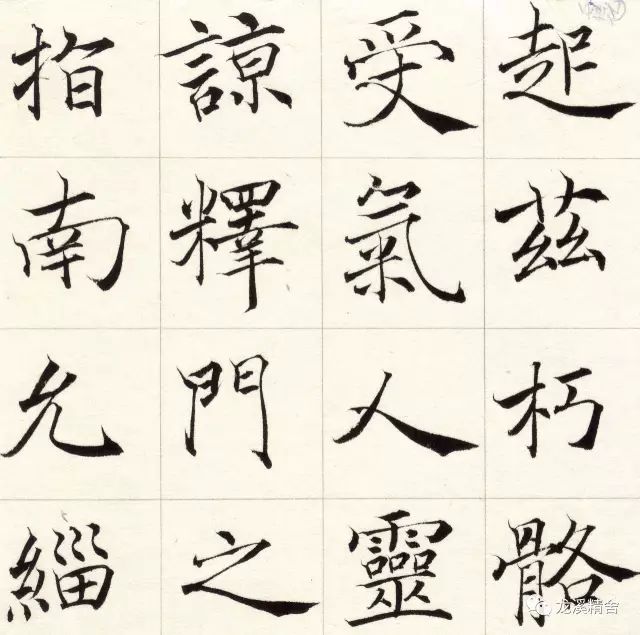 起茲朽骼
受氣人靈
諒釋門之
指南允緇
龙溪精舍